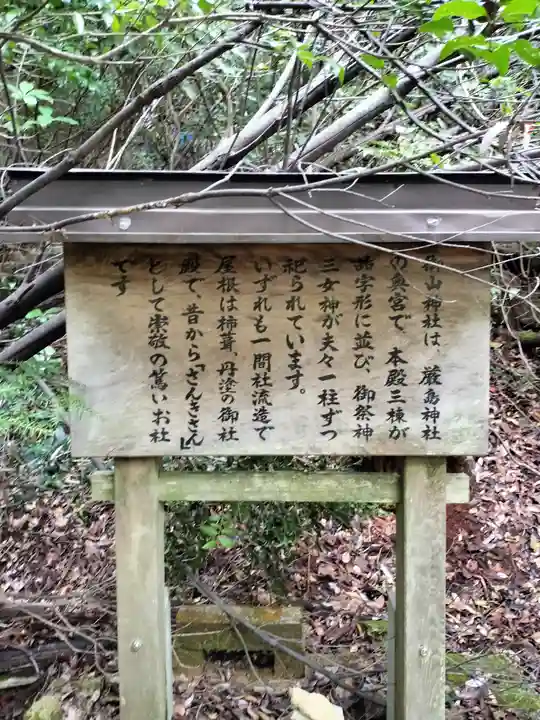 御山神社は、厳島神社
の奥宮で、本殿三棟が
品字形に並び、御祭神
三女神が夫々一柱ずつ
祀られています。
いずれも一間社流造で
屋根は柿葺、丹塗の御社
殿で、昔から「さんきさん」
として崇敬の篤いお社
です